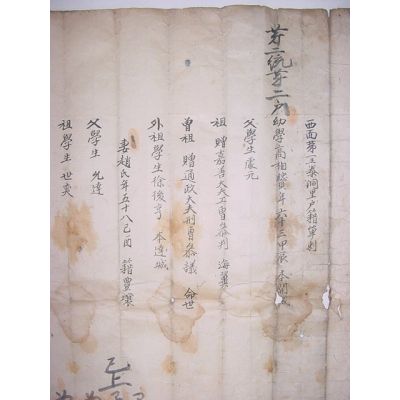 西面第一泰洞里戶籍單
第一統第二戶幼學高相年六十三甲辰 本開城
父學生處元
祖 贈嘉善大夫曹參判 海翼
曾祖 贈通政大夫刑曹參議 命世
外祖學生徐後亨 本達城
妻趙氏年五十八己酉 籍豊壤
父學生 允達
祖學生 世奭
已上